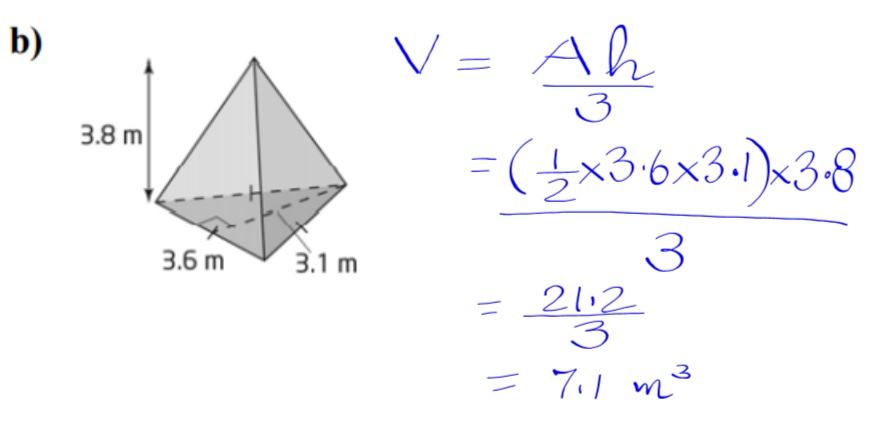 b)
3.8 m
3.6 m
3.1 m
V = Ah/3
= (1/2×3.6×3.1)×3.8/3
= 21.2/3
= 7.1 m³